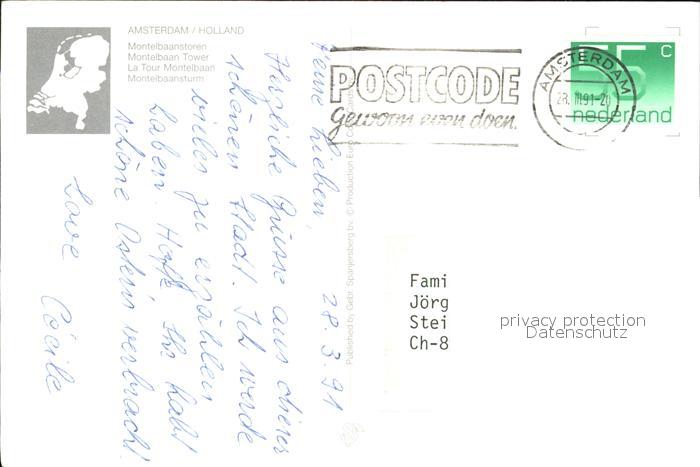 AMSTERDAM / HOLLAND
Montelbaanstoren
Montelbaan Tower
La Tour Montelbaan
Montelbaansturm
POSTCODE
Gewoon even doen.
AMSTERDAM
28.III.91-20
55 c
nederland
28.3.91
Meine Lieben,
Herzliche Grüsse aus dieser
schönen Stadt. Ich werde
vieles zu erzählen
haben. Hoffe, Ihr habt
schöne Ostern verbracht!
Love Cécile
Published by Gebr. Spanjersberg bv. © Production Euro
Fami
Jörg
Stei
Ch-8
privacy protection
Datenschutz